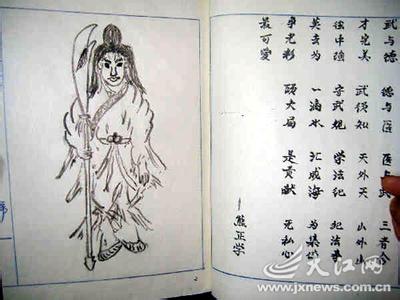 武与德 德与医 医与武 三者合
才完美 武须知 天外天 山外山
强中强 守武规 学法纪 犯法事
莫去为 一滴水 汇成海 为集体
争光彩 顾大局 是贡献 无私心
最可愛
—熊正学
2
大江网
www.jxnews.com.cn